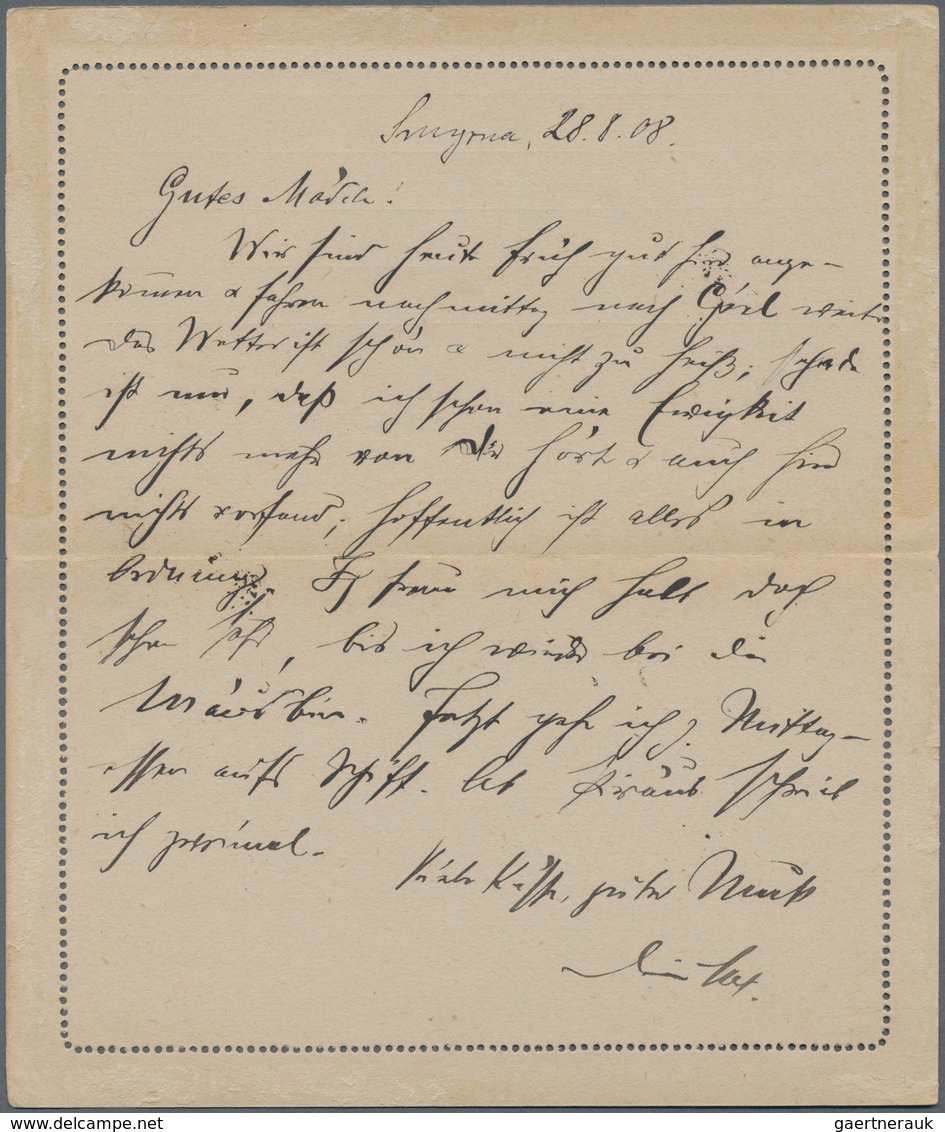 Smyrna, 28.8.08.
Gutes Mädele!
Wir sind heute früh gut hier ange-
kommen & fahren nachmittag nach weiter
das Wetter ist schön & nicht zu heiß; schade
ist nur, daß ich schon eine Ewigkeit
nichts mehr von Dir hört & auch hier
nichts vorfand; hoffentlich ist alles in
Ordnung. Ich freue mich halt doch
schon sehr, bis ich wieder bei Dir
bin. Jetzt gehe ich z. Mittag-
essen aufs Schiff. schrieb
ich zweimal.
Viele Küsse, guter
Dein
gaertnerauk